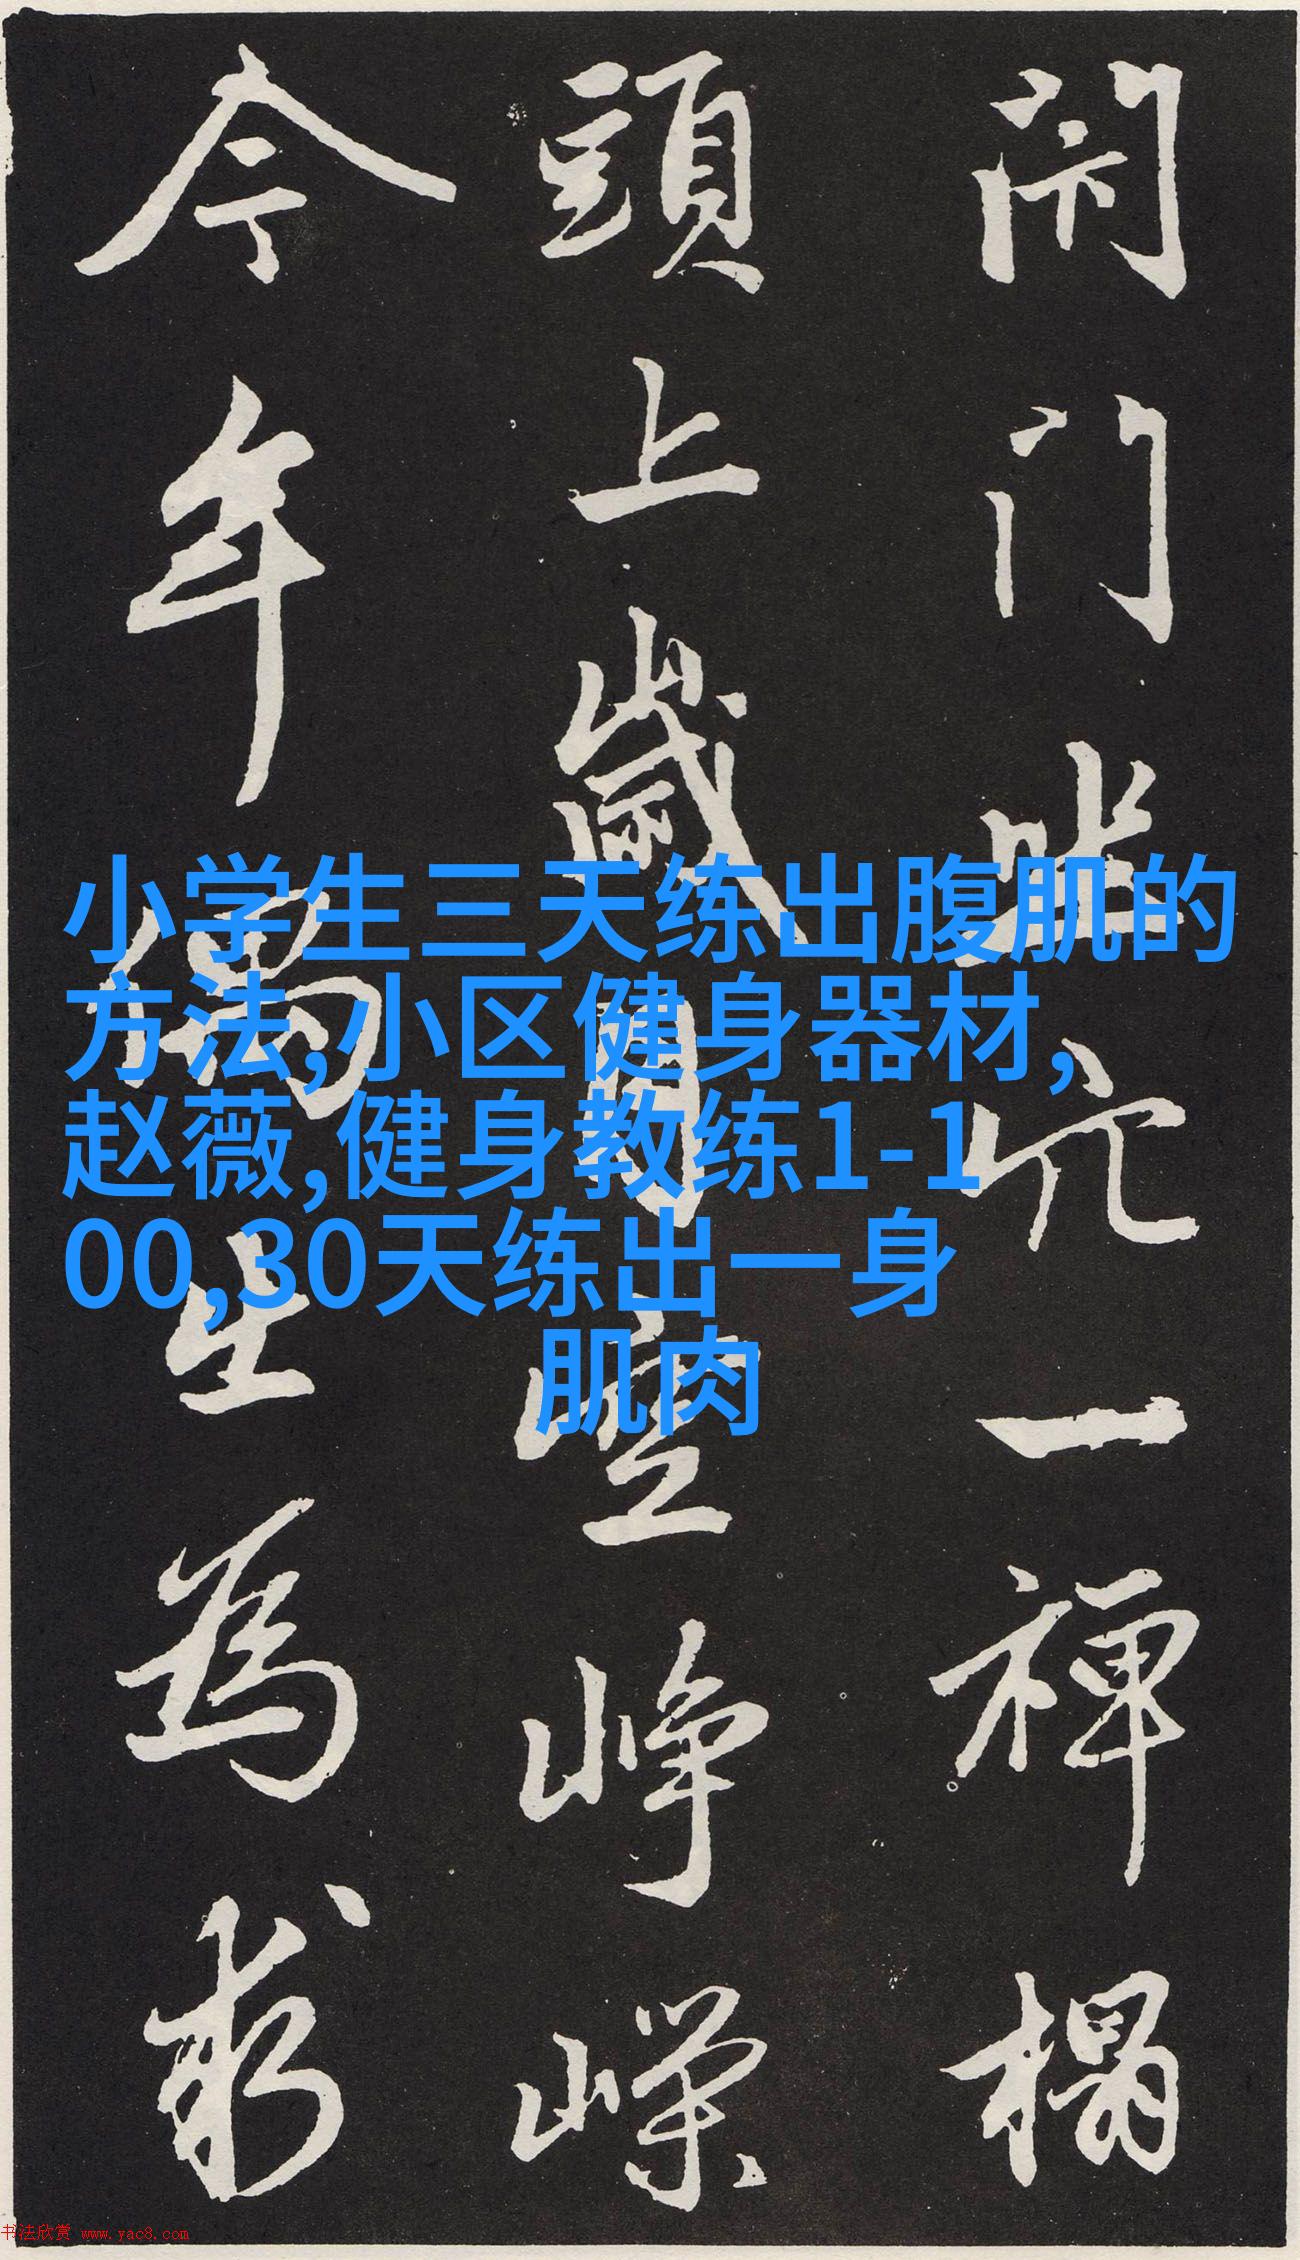 闭门坐穴一禅榻
頭上歲月空峥嵘
今年偶出為求
小学生三天练出腹肌的
方法,小区健身器材,
赵薇,健身教练1-1
00,30天练出一身
肌肉
书法欣赏 www.yac8.com